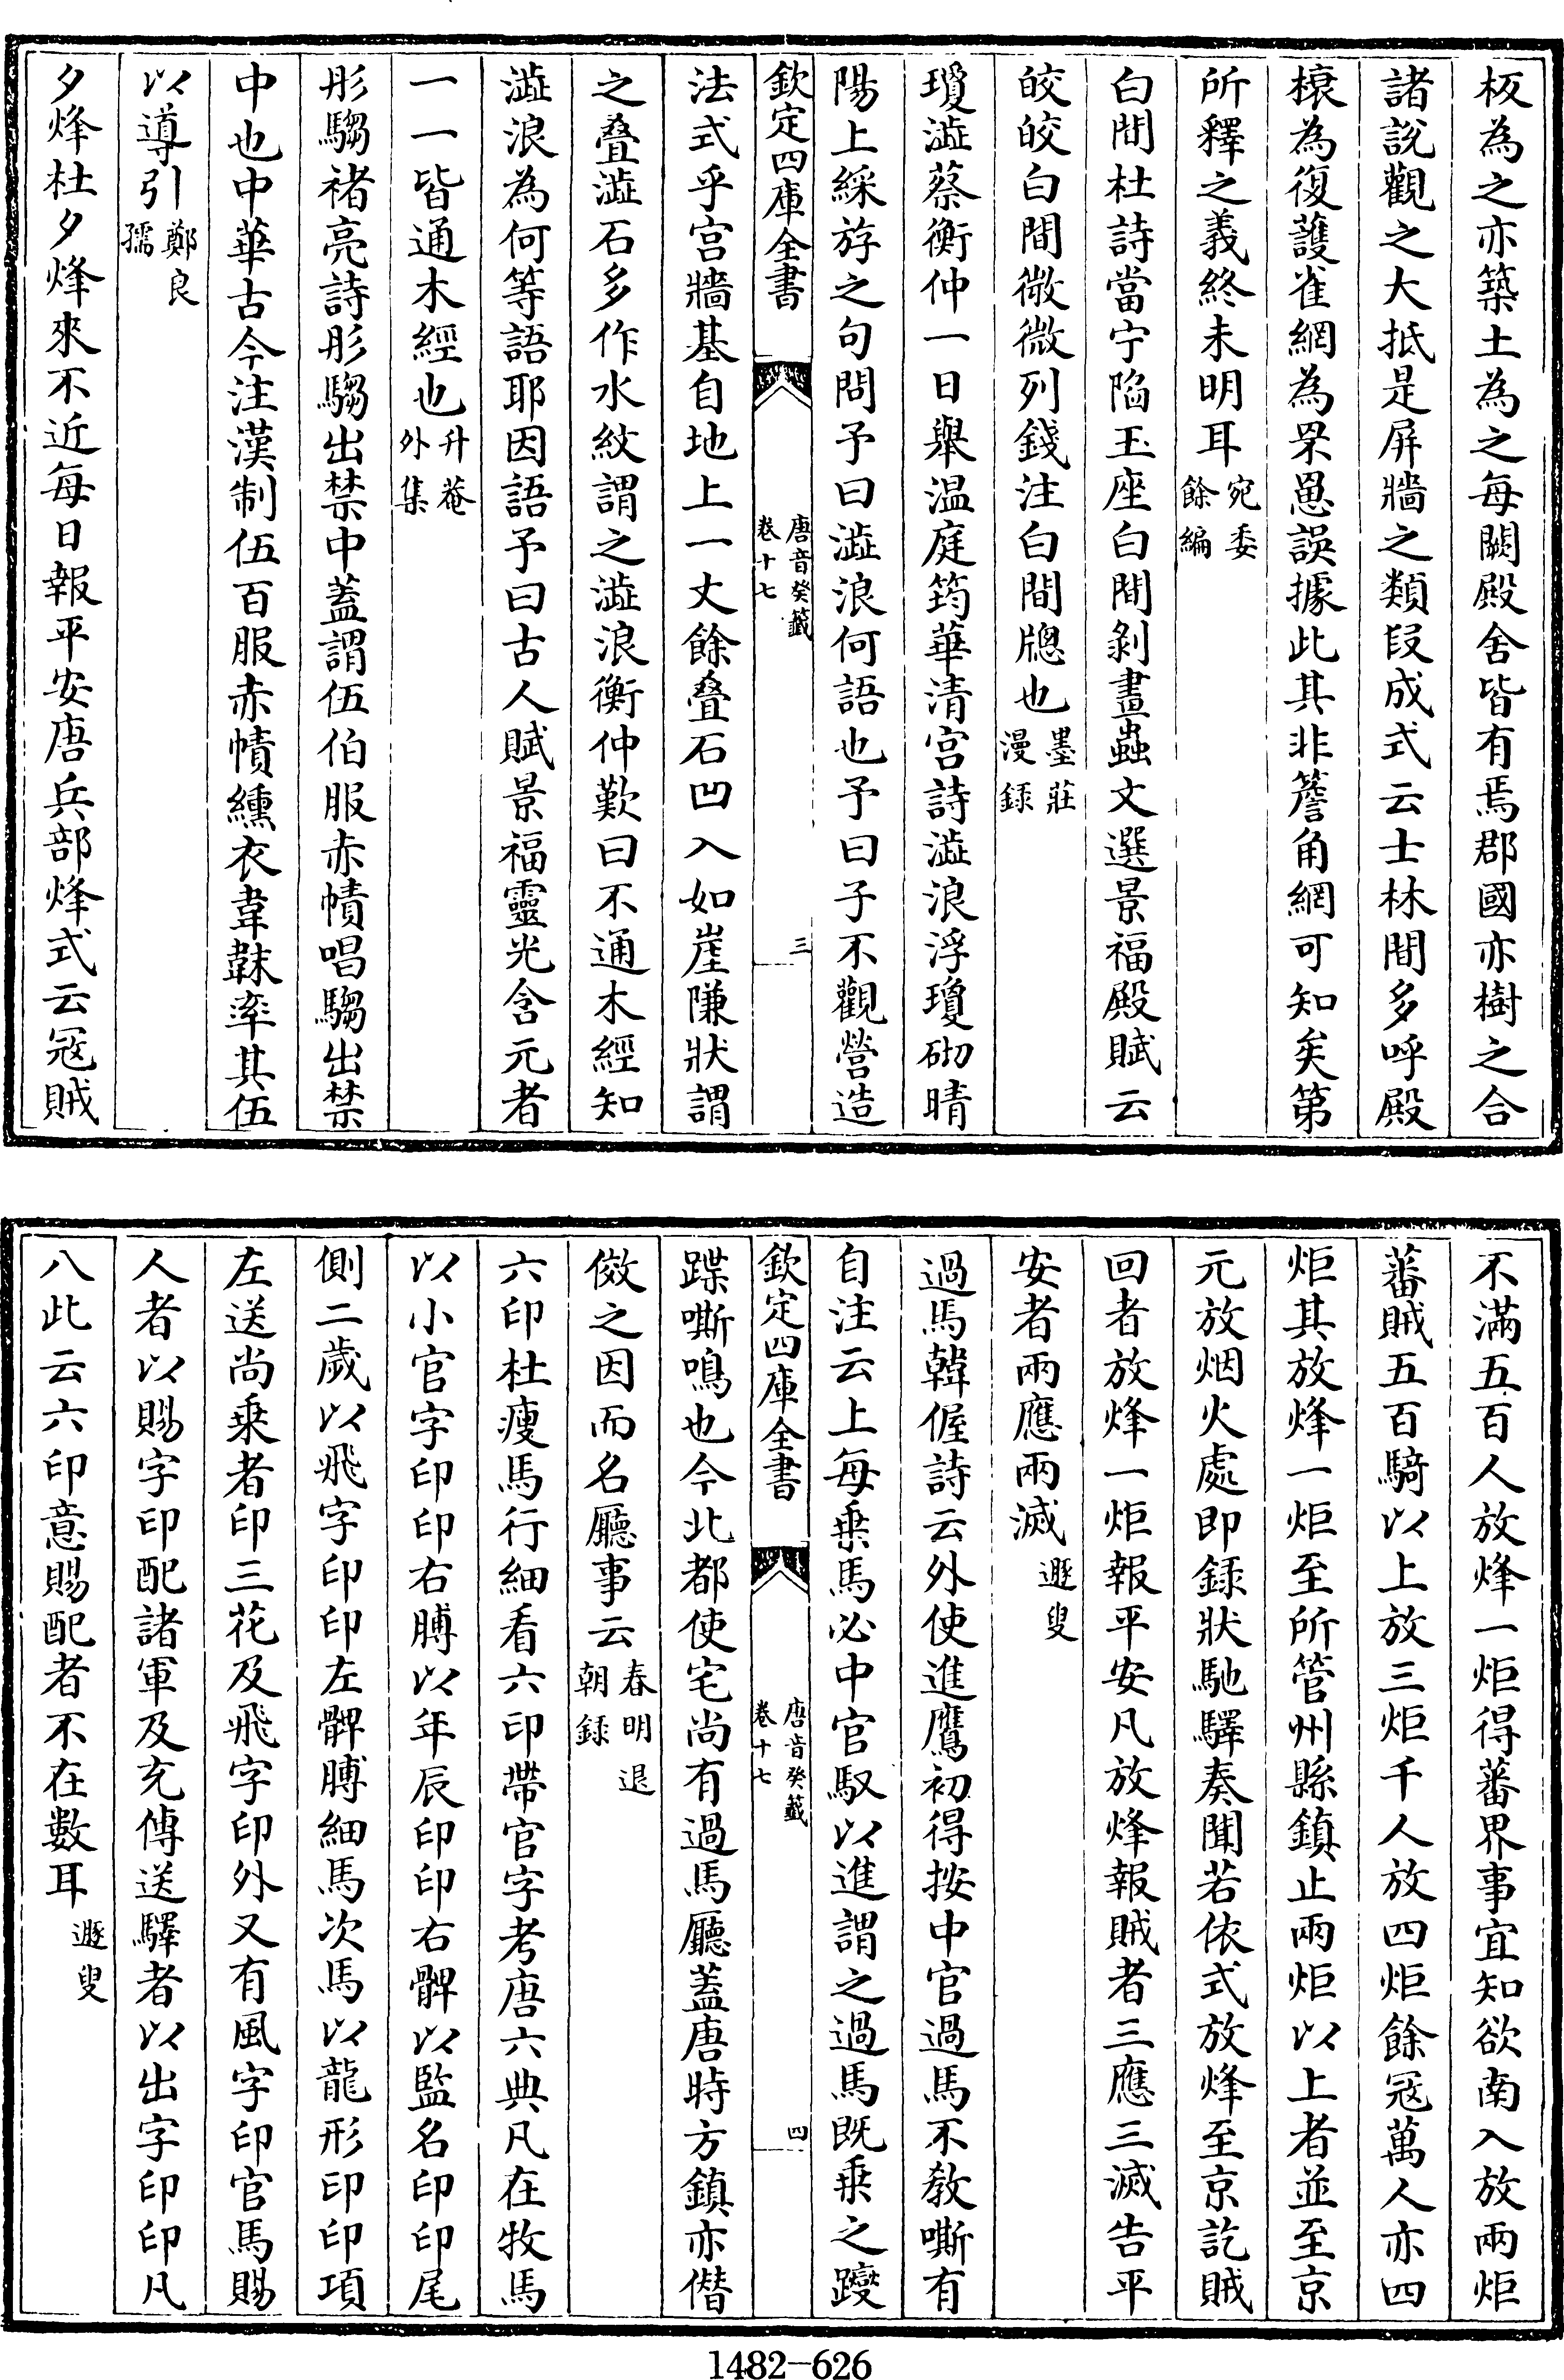 板為之亦築土為之每闕殿舍皆有焉郡國亦樹之合
諸說觀之大抵是屏牆之類段成式云士林間多呼殿
榱為復護雀網為罘罳誤據此其非簷角網可知矣第
所釋之義終未明耳宛委餘編
白間杜詩當宁陷玉座白間剝畫蟲文選景福殿賦云
皎皎白間微微列錢注白間牕也墨莊漫録
瓊澁蔡衡仲一日舉温庭筠華清宫詩澁浪浮瓊砌晴
陽上綵斿之句問予曰澁浪何語也予曰子不觀營造
欽定四庫全書
唐音癸籖
卷十七
三
法式乎宫牆基自地上一丈餘叠石凹入如崖隒狀謂
之叠澁石多作水紋謂之澁浪衡仲歎曰不通木經知
澁浪為何等語耶因語予曰古人賦景福靈光含元者
一一皆通木經也升菴外集
彤騶褚亮詩彤騶出禁中蓋謂伍伯服赤幘唱騶出禁
中也中華古今注漢制伍百服赤幘纁衣韋韎率其伍
以導引鄭良孺
夕烽杜夕烽來不近每日報平安唐兵部烽式云冦賊
不滿五百人放烽一炬得蕃界事宜知欲南入放兩炬
蕃賊五百騎以上放三炬千人放四炬餘冦萬人亦四
炬其放烽一炬至所管州縣鎮止兩炬以上者並至京
元放烟火處即録狀馳驛奏聞若依式放烽至京訖賊
回者放烽一炬報平安凡放烽報賊者三應三滅告平
安者兩應兩滅遯叟
過馬韓偓詩云外使進鷹初得按中官過馬不教嘶有
自注云上每乗馬必中官馭以進謂之過馬既乗之躞
欽定四庫全書
唐音癸籖
卷十七
四
蹀嘶鳴也今北都使宅尚有過馬廳蓋唐時方鎮亦僣
傚之因而名廳事云春明退朝録
六印杜瘦馬行細看六印帶官字考唐六典凡在牧馬
以小官字印印右膊以年辰印印右髀以監名印印尾
側二歲以飛字印印左髀膊細馬次馬以龍形印印項
左送尚乗者印三花及飛字印外又有風字印官馬賜
人者以賜字印配諸軍及充傳送驛者以出字印印凡
八此云六印意賜配者不在數耳遯叟
1482-626